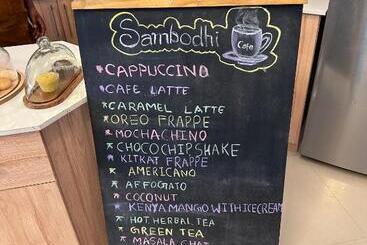 Sambodhi
Cafe
* CAPPUCCINO
* CAFE LATTE
* CARAMEL LATTE
* OREO FRAPPE
* MOCHACHINO
* CHOCOCHIPSHAKE
* KITKAT FRAPPE
* AMERICANO
* AFFOGATO
* COCONUT
* KENYA MANGO WITH ICECREAM
* HOT HERBAL TEA
* GREEN TEA
* MASALA CHAI